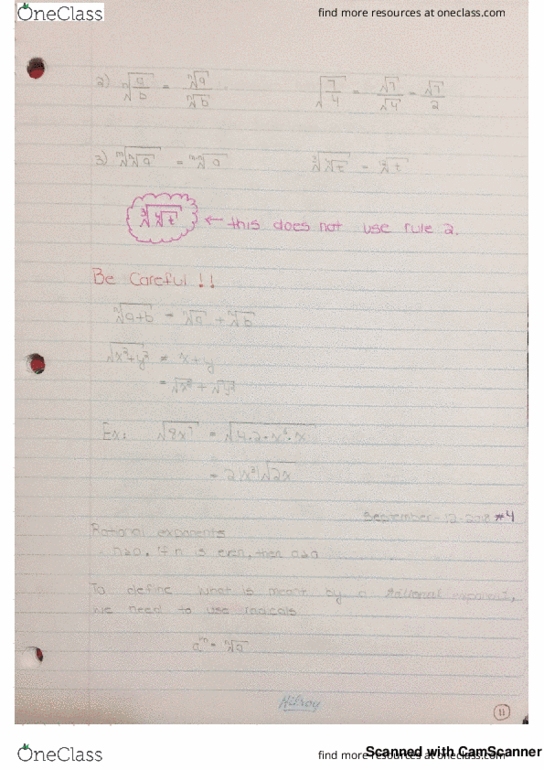 OneClass
find more resources at oneclass.com
2) ⁿ√(a/b) = ⁿ√a / ⁿ√b √(7/4) = √7/√4 = √7/2
3) ᵐ√ⁿ√a = ᵐⁿ√a
← this does not use rule 2.
Be Careful !!
ⁿ√a+b = ⁿ√a + ⁿ√b
√x²+y² = x+y
= √x² + √y²
Ex: √8x⁷ = √4·2·x⁶·x
= 2|x³|√2x
September 12 #4
Rational exponents
n is even, then
To define what is meant by a rational exponent,
we need to use radicals
Hilroy
11
OneClass
find more resources at oneclass.com
Scanned with CamScanner